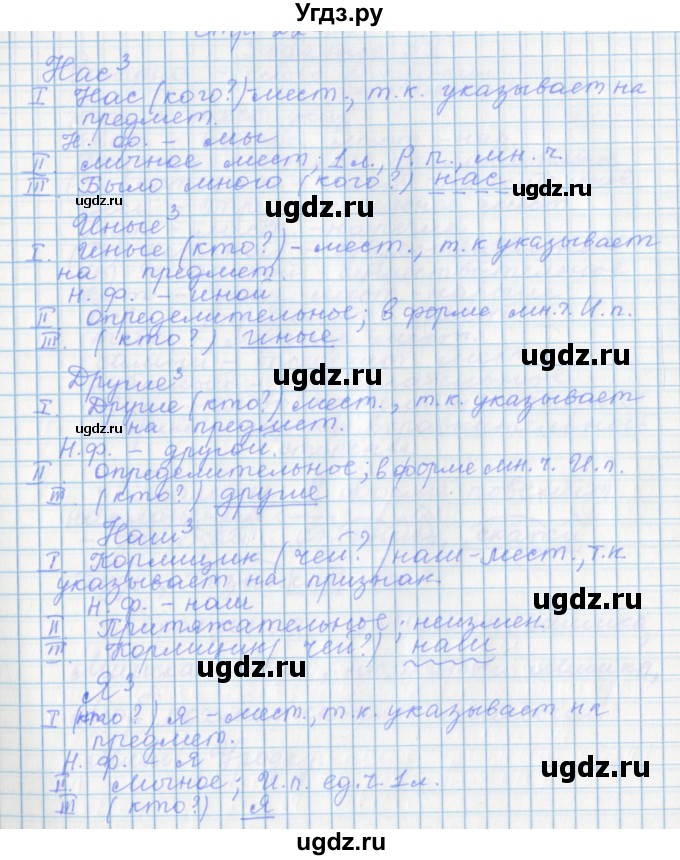 Угдз.ру
стр. 22
Нас³
I Нас (кого?) - мест., т.к. указывает на
предмет.
Н. ф. - мы
II. личное мест., 1 л., Р. п., мн. ч.
III. Было много (кого?) нас
ugdz.ru ugdz.ru ugdz.ru
Иные³
I. Иные (кто?) - мест., т.к указывает
на предмет.
Н. ф. - иной
II Определительное; в форме мн. ч. И. п.
III. (кто?) иные
ugdz.ru ugdz.ru
Другие³
I. Другие (кто?) мест., т.к. указывает
ugdz.ru на предмет.
Н. ф. - другой.
II Определительное; в форме мн. ч. И. п.
III (кто?) другие
ugdz.ru ugdz.ru
Наш³
I. Кормищик (чей?) наш - мест., т.к
указывает на признак.
Н. ф. - наш
ugdz.ru
II Притяжательное; неизмен.
III. Кормищик (чей?) наш
ugdz.ru
Я³
I (кто?) Я - мест., т.к. указывает на
предмет.
Н. ф. - Я
II. личное; И. п. ед. ч. 1 л.
III (кто?) Я
ugdz.ru ugdz.ru
ugdz.ru